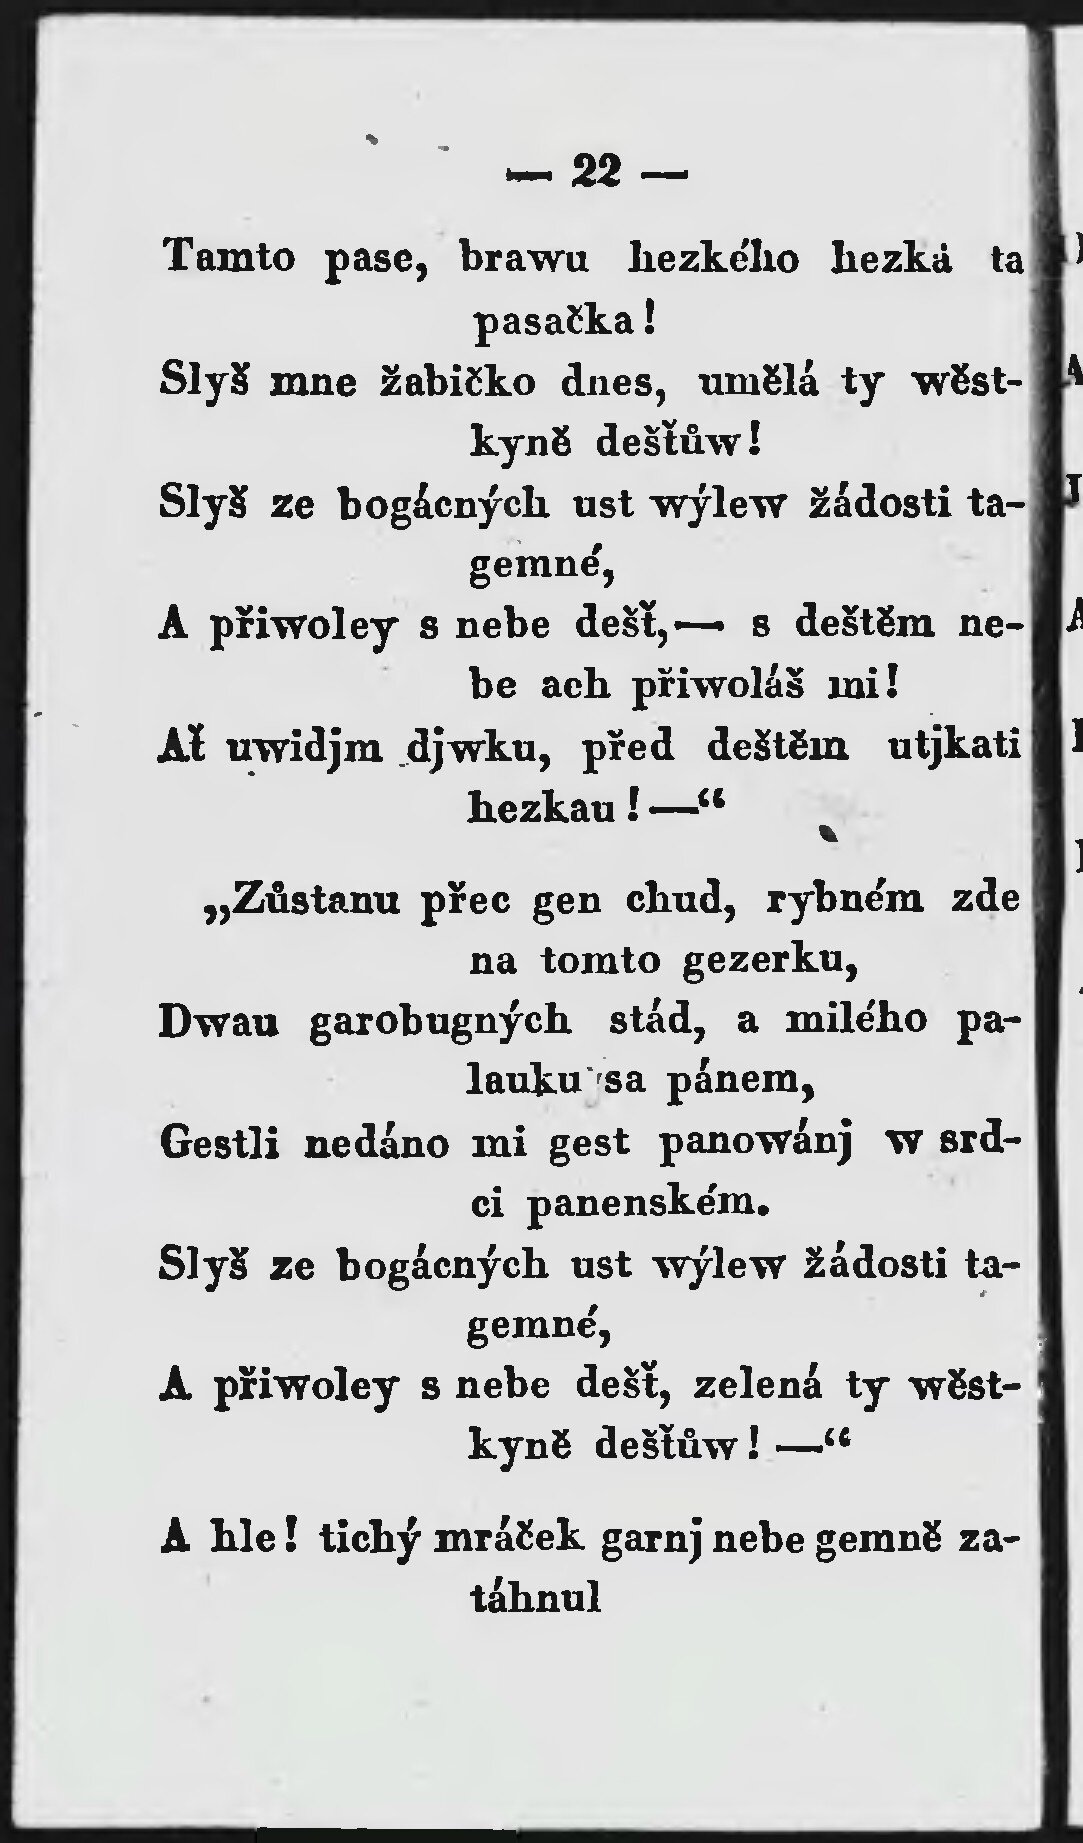 — 22 —
Tamto pase, brawu hezkého hezká ta
pasačka!
Slyš mne žabičko dnes, umělá ty wěst-
kyně dešťůw!
Slyš ze bogácných ust wýlew žádosti ta-
gemné,
A přiwoley s nebe dešť,— s deštěm ne-
be ach přiwoláš mi!
Ať uwidjm djwku, před deštěm utjkati
hezkau!—“
„Zůstanu přec gen chud, rybném zde
na tomto gezerku,
Dwau garobugných stád, a milého pa-
lauku sa pánem,
Gestli nedáno mi gest panowánj w srd-
ci panenském.
Slyš ze bogácných ust wýlew žádosti ta-
gemné,
A přiwoley s nebe dešť, zelená ty wěst-
kyně dešťůw! —“
A hle! tichý mráček garnj nebe gemně za-
táhnul